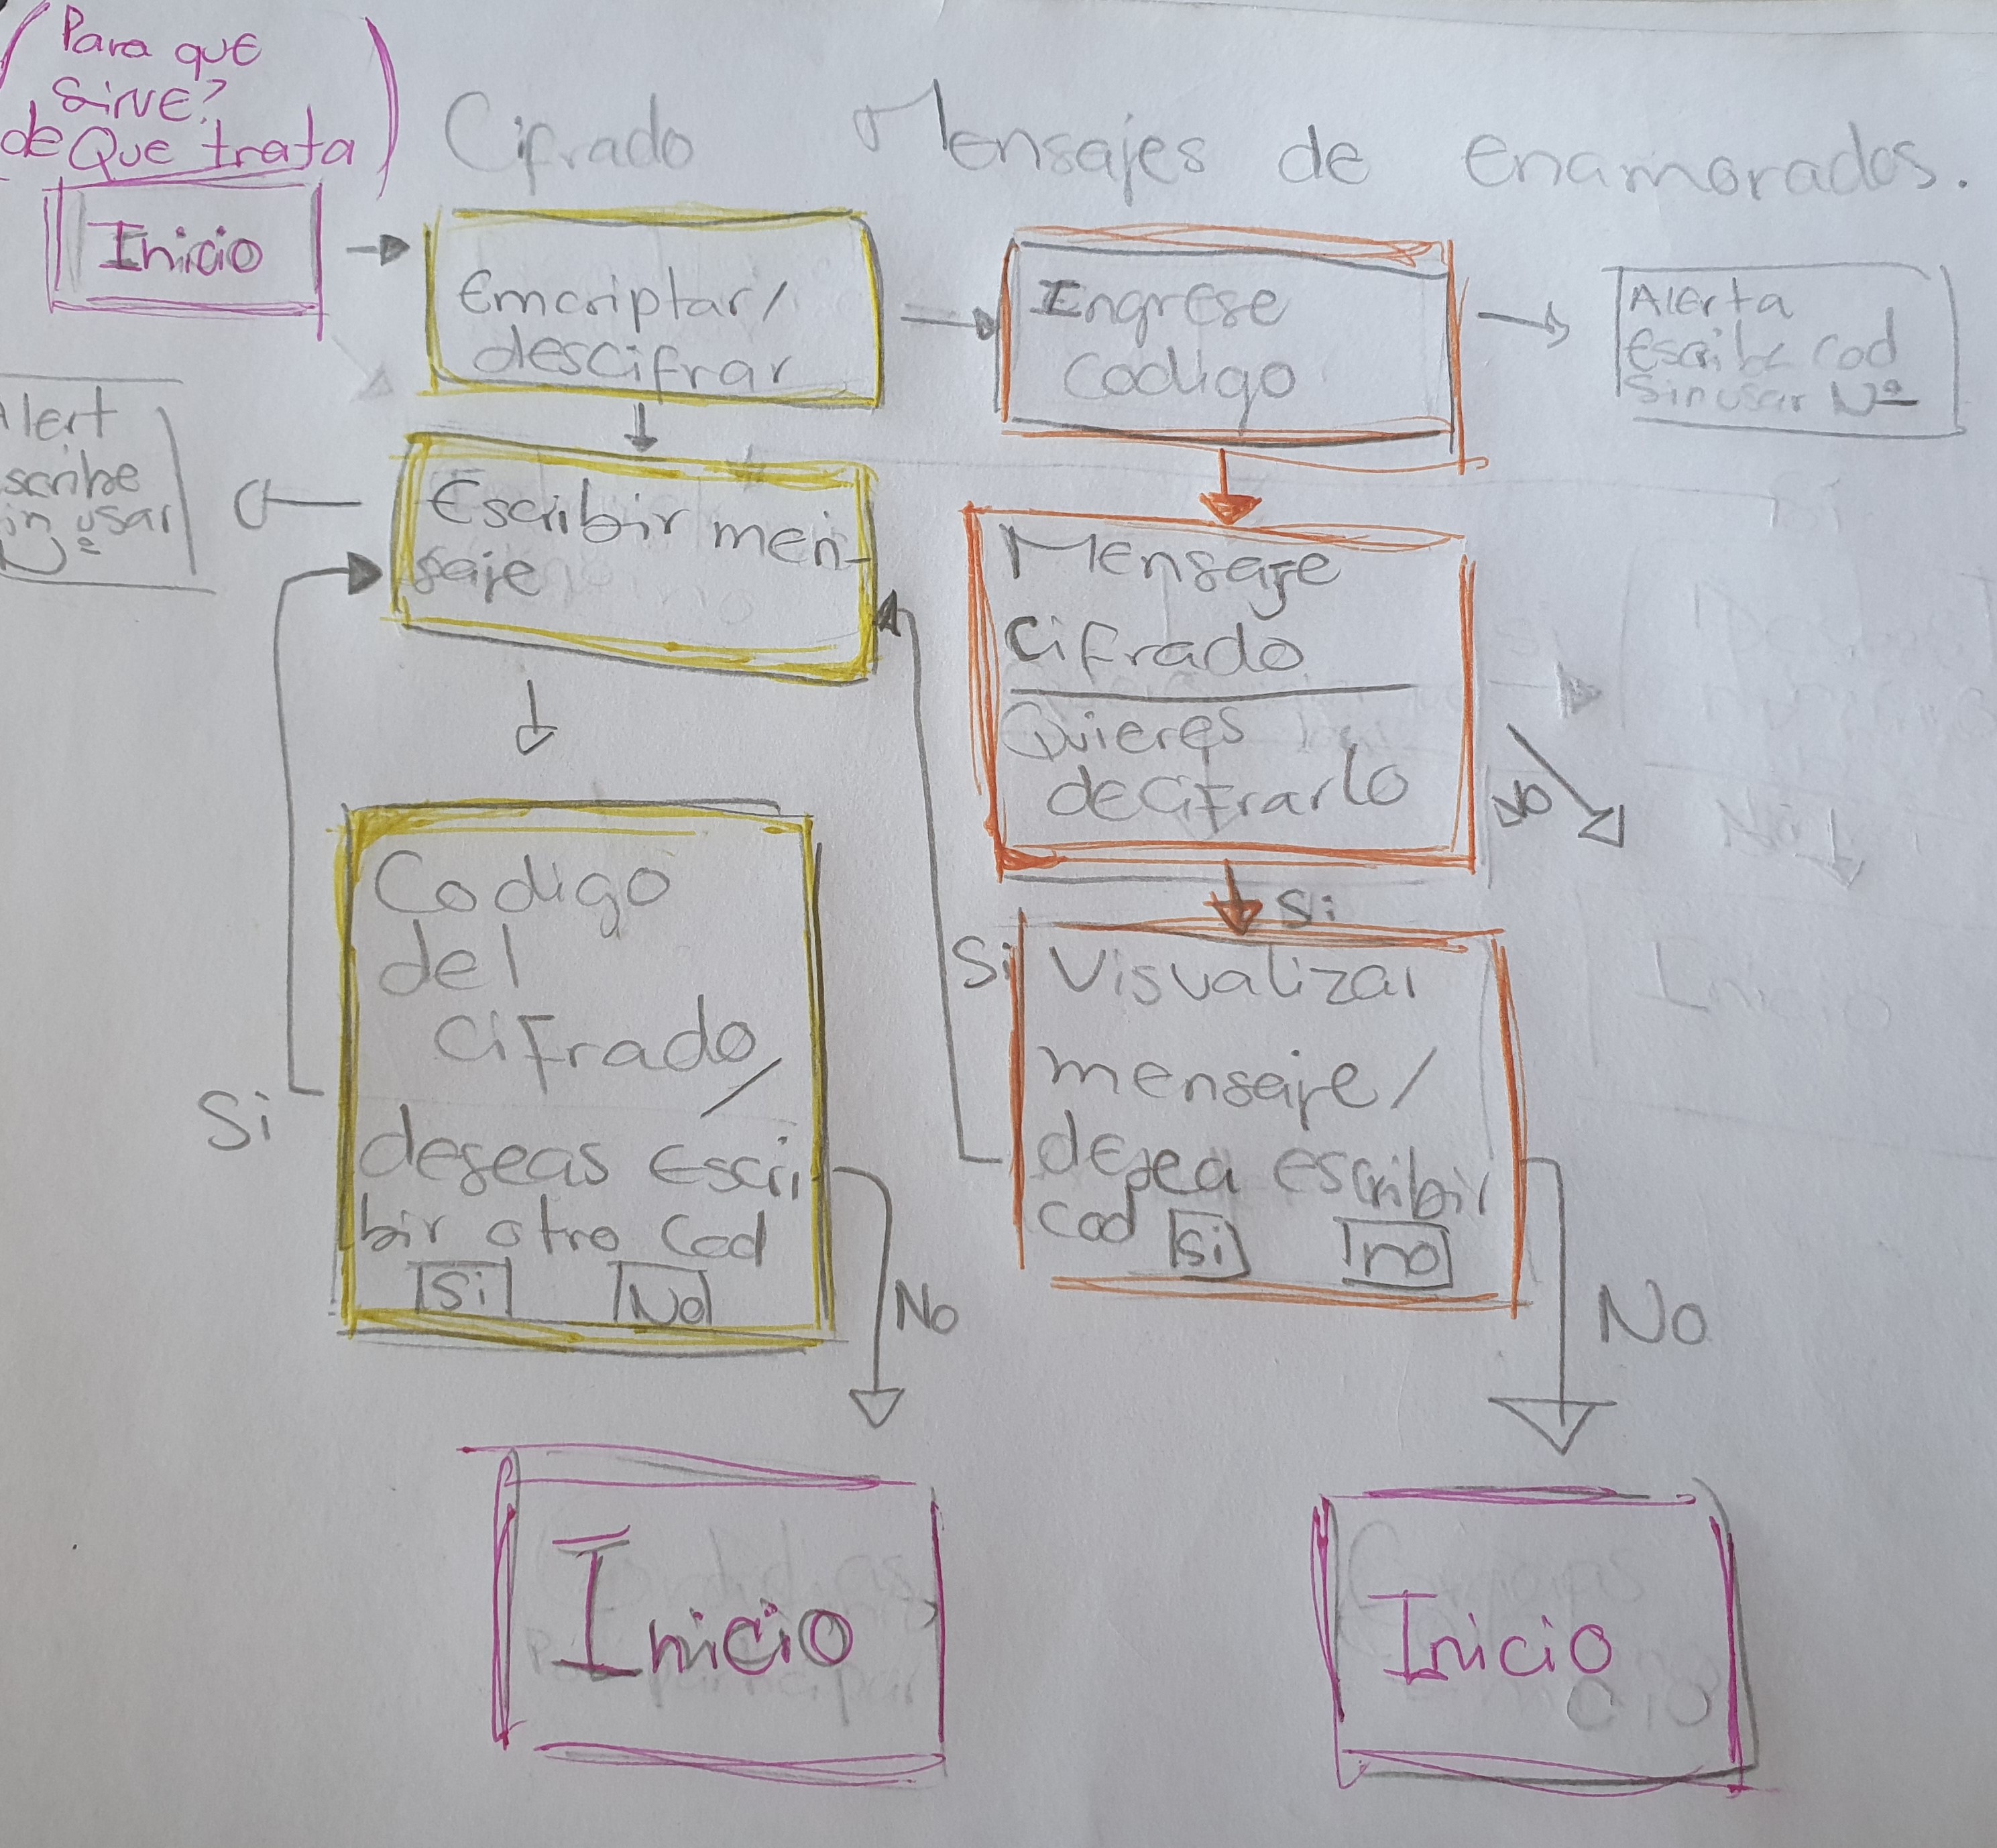 Para que
sirve?
de Que trata
Cifrado Mensajes de enamorados.
Inicio
Emcriptar/
descifrar
Ingrese
Codigo
Alerta
Escribe cod
Sin usar Nº
Alert
scribe
in usar
Nº
Escribir men-
saje
Mensaje
Cifrado
Quieres
deCiFrarlo
NO
Si
Codigo
del
CiFrado/
deseas Escri
bir otro Cod
Si No
Si
No
Si
Visualizar
mensaje/
desea escribir
cod Si no
No
Inicio
Inicio
Inicio